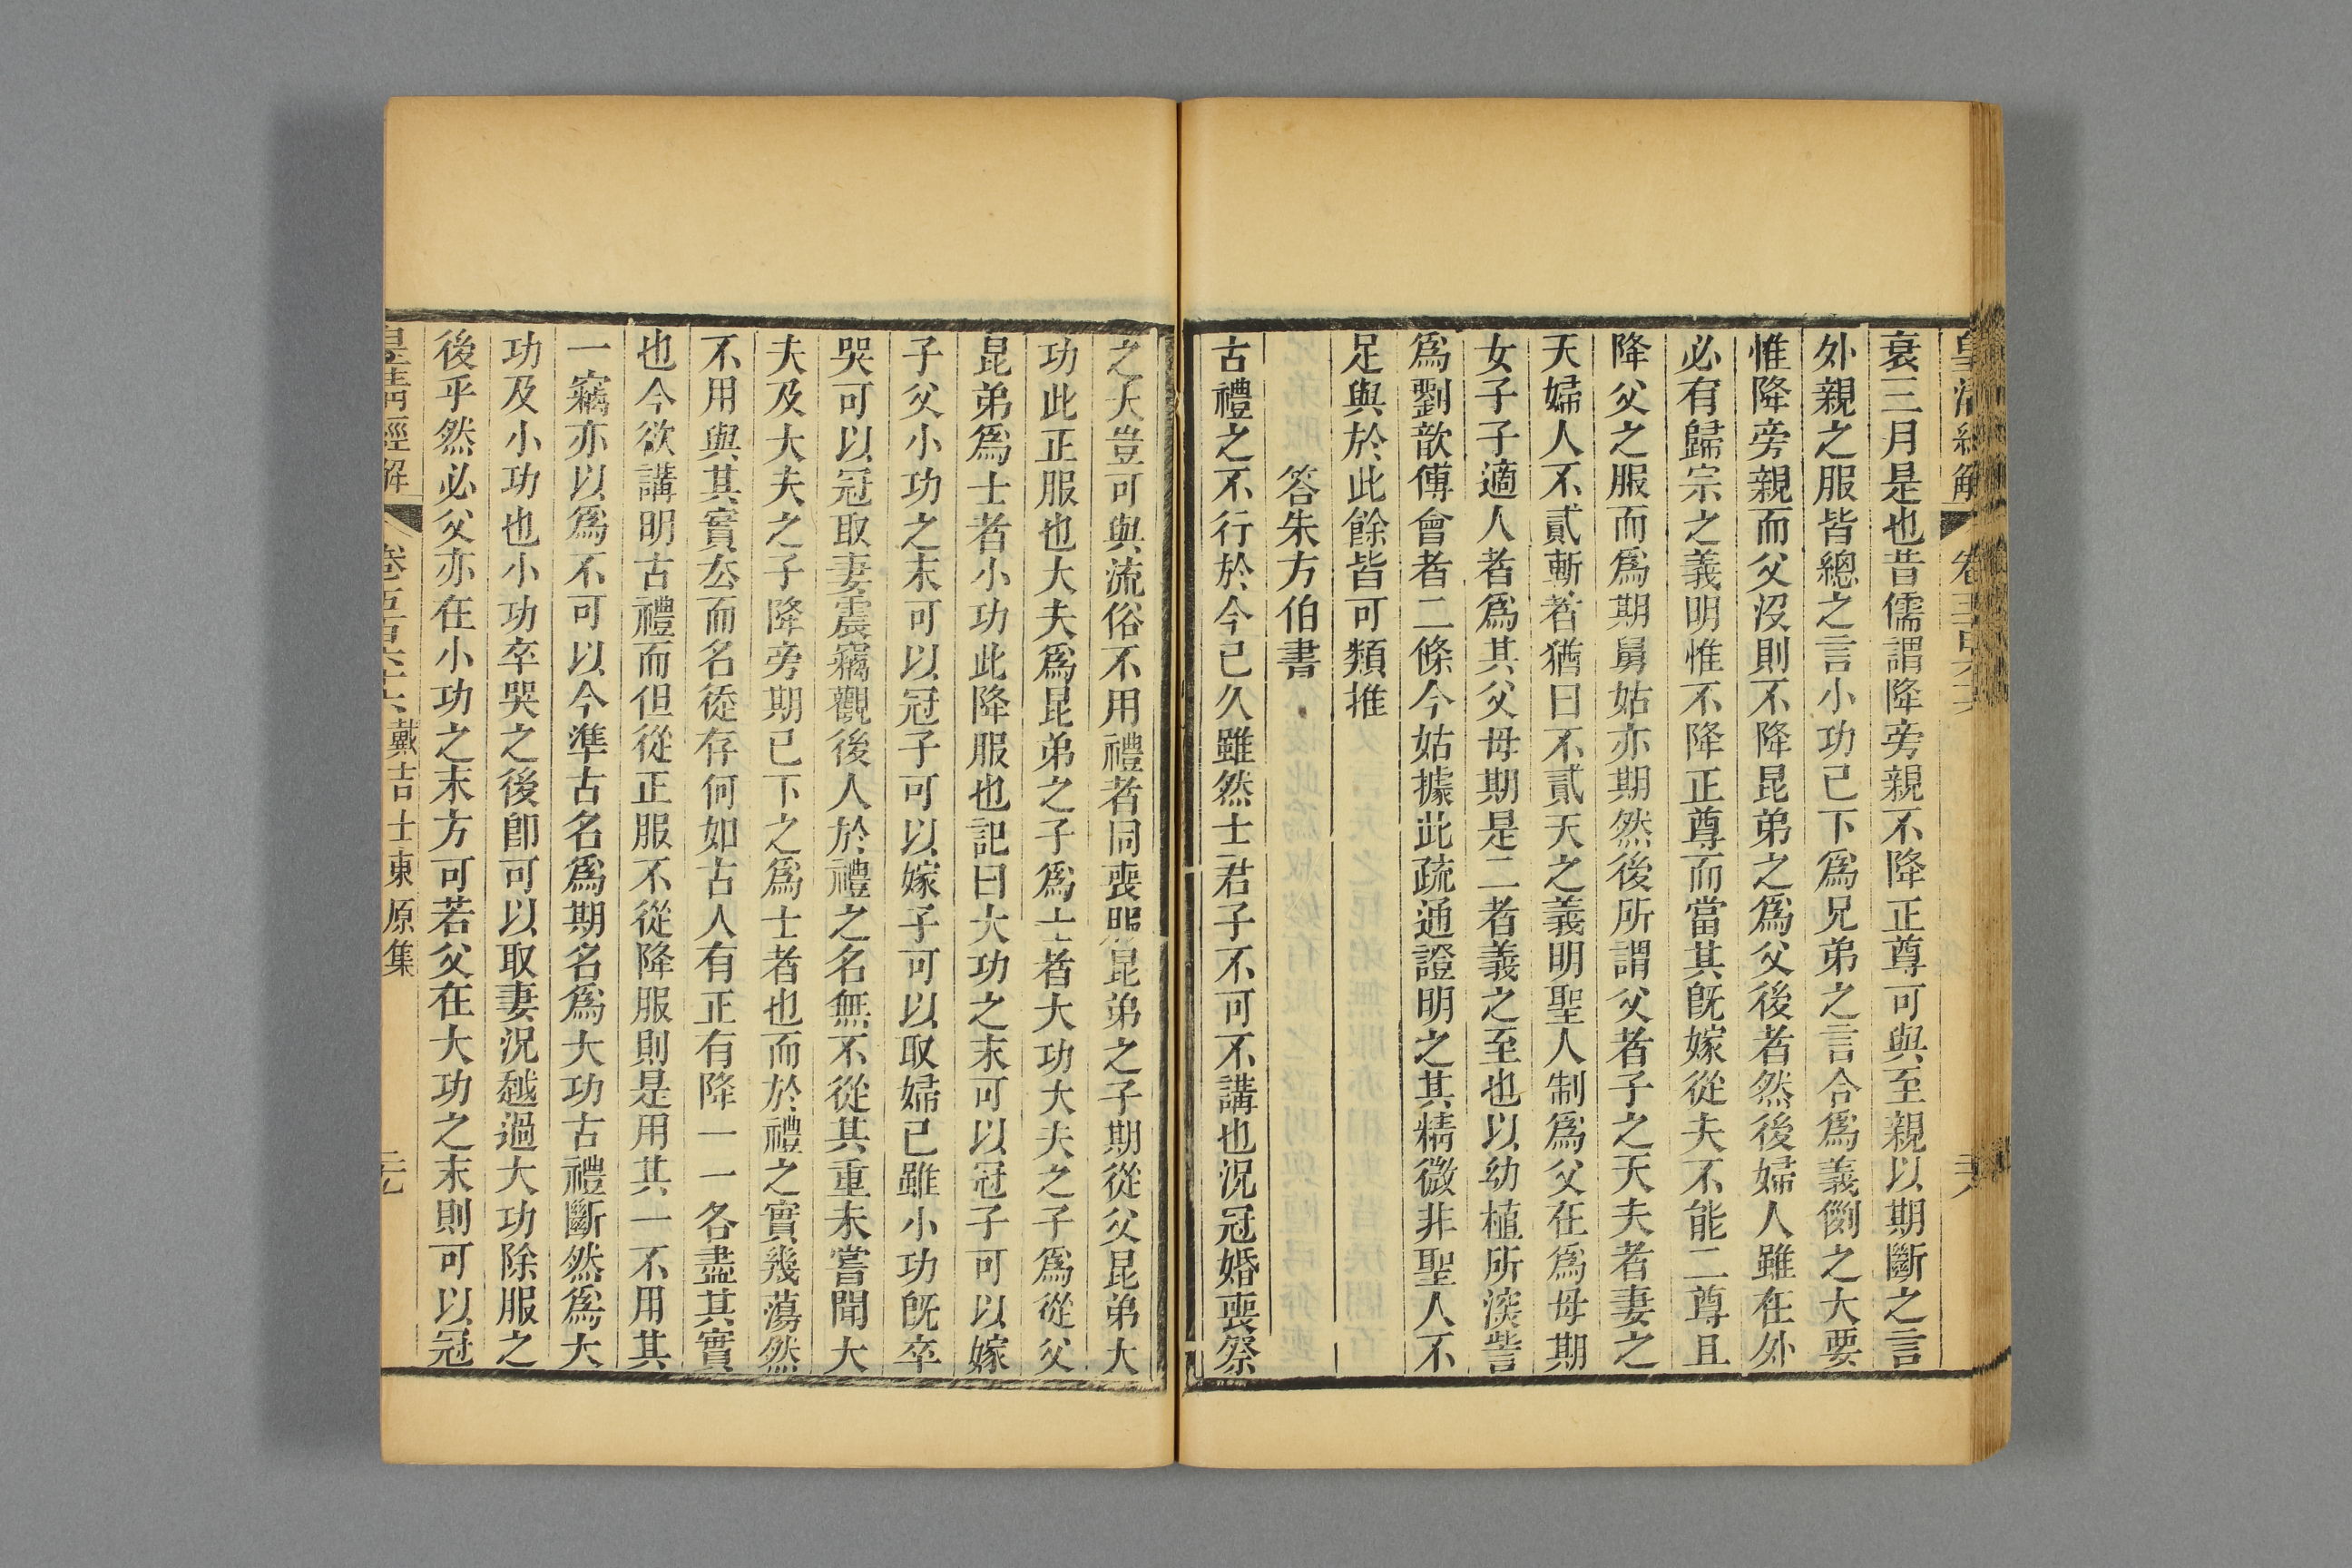 衰三月是也昔儒謂降旁親不降正尊可與至親以期斷之言
外親之服皆緦之言小功已下爲兄弟之言合爲義例之大要
惟降旁親而父沒則不降昆弟之爲父後者然後婦人雖在外
必有歸宗之義明惟不降正尊而當其旣嫁從夫不能二尊且
降父之服而爲期舅姑亦期然後所謂父者子之天夫者妻之
天婦人不貳斬者猶曰不貳天之義明聖人制爲父在爲母期
女子子適人者爲其父母期是二者義之至也以幼植所淡訾
爲劉歆傅會者二條今姑據此疏通證明之其精微非聖人不
足與於此餘皆可類推
答朱方伯書
古禮之不行於今已久雖然士君子不可不講也況冠婚喪祭
之大豈可與流俗不用禮者同喪服昆弟之子期從父昆弟大
功此正服也大夫爲昆弟之子爲士者大功大夫之子爲從父
昆弟爲士者小功此降服也記曰大功之末可以冠子可以嫁
子父小功之末可以冠子可以嫁子可以取婦已雖小功旣卒
哭可以冠取妻震竊觀後人於禮之名無不從其重未嘗聞大
夫及大夫之子降旁期已下之爲士者也而於禮之實幾蕩然
不用與其實厺而名徒存何如古人有正有降一一各盡其實
也今欲講明古禮而但從正服不從降服則是用其一不用其
一竊亦以爲不可以今準古名爲期名爲大功古禮斷然爲大
功及小功也小功卒哭之後卽可以取妻況越過大功除服之
後乎然必父亦在小功之末方可若父在大功之末則可以冠
皇清經解 卷五百六十六 戴吉士東原集